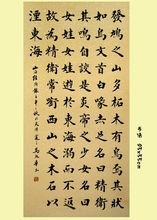 發鳩之山多柘木有鳥焉其狀
如烏文首白喙赤足名曰精衛
其鳴自詨是炎帝之少女名曰
女娃女娃遊於東海溺而不返
故爲精衛常銜西山之木石以
湮東海